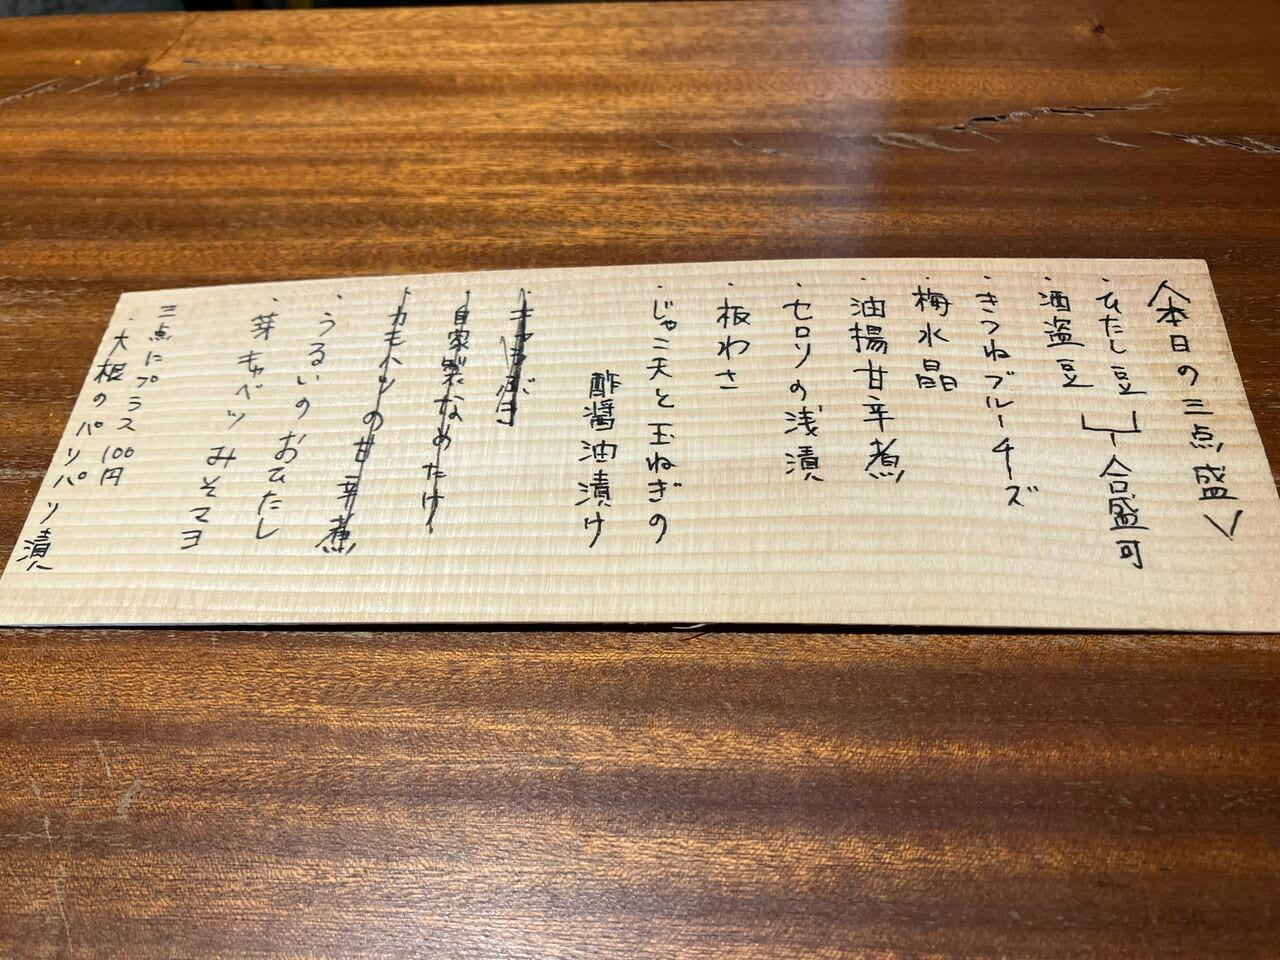 〈本日の三点盛〉
・ひたし豆
・酒盗豆
合盛可
・きつねブルーチーズ
・梅水晶
・油揚甘辛煮
・セロリの浅漬
・板わさ
・じゃこ天と玉ねぎの
酢醤油漬け
・自家製なめたけ
・カモハツの甘辛煮
・うるいのおひたし
・芽キャベツみそマヨ
三点にプラス100円
・大根のパリパリ漬